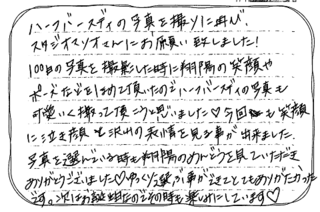 ハーフバースディの写真を撮りに再び
スタジオスオマムにお願い致しました!
100日の写真を撮影した時に 笑顔や
ポーズなどをほめて頂いたのでハーフバースディの写真も
可愛いく撮って頂こうと思いました♡今回も笑顔
に泣き顔と沢山の表情を見る事が出来ました。
写真を選んでいる時も めんどうを見ていただき
ありがとうございました♡ゆっくり選ぶ事ができとてもありがたかった
です。次はお誕生日なのでその時も楽しみにしています♡